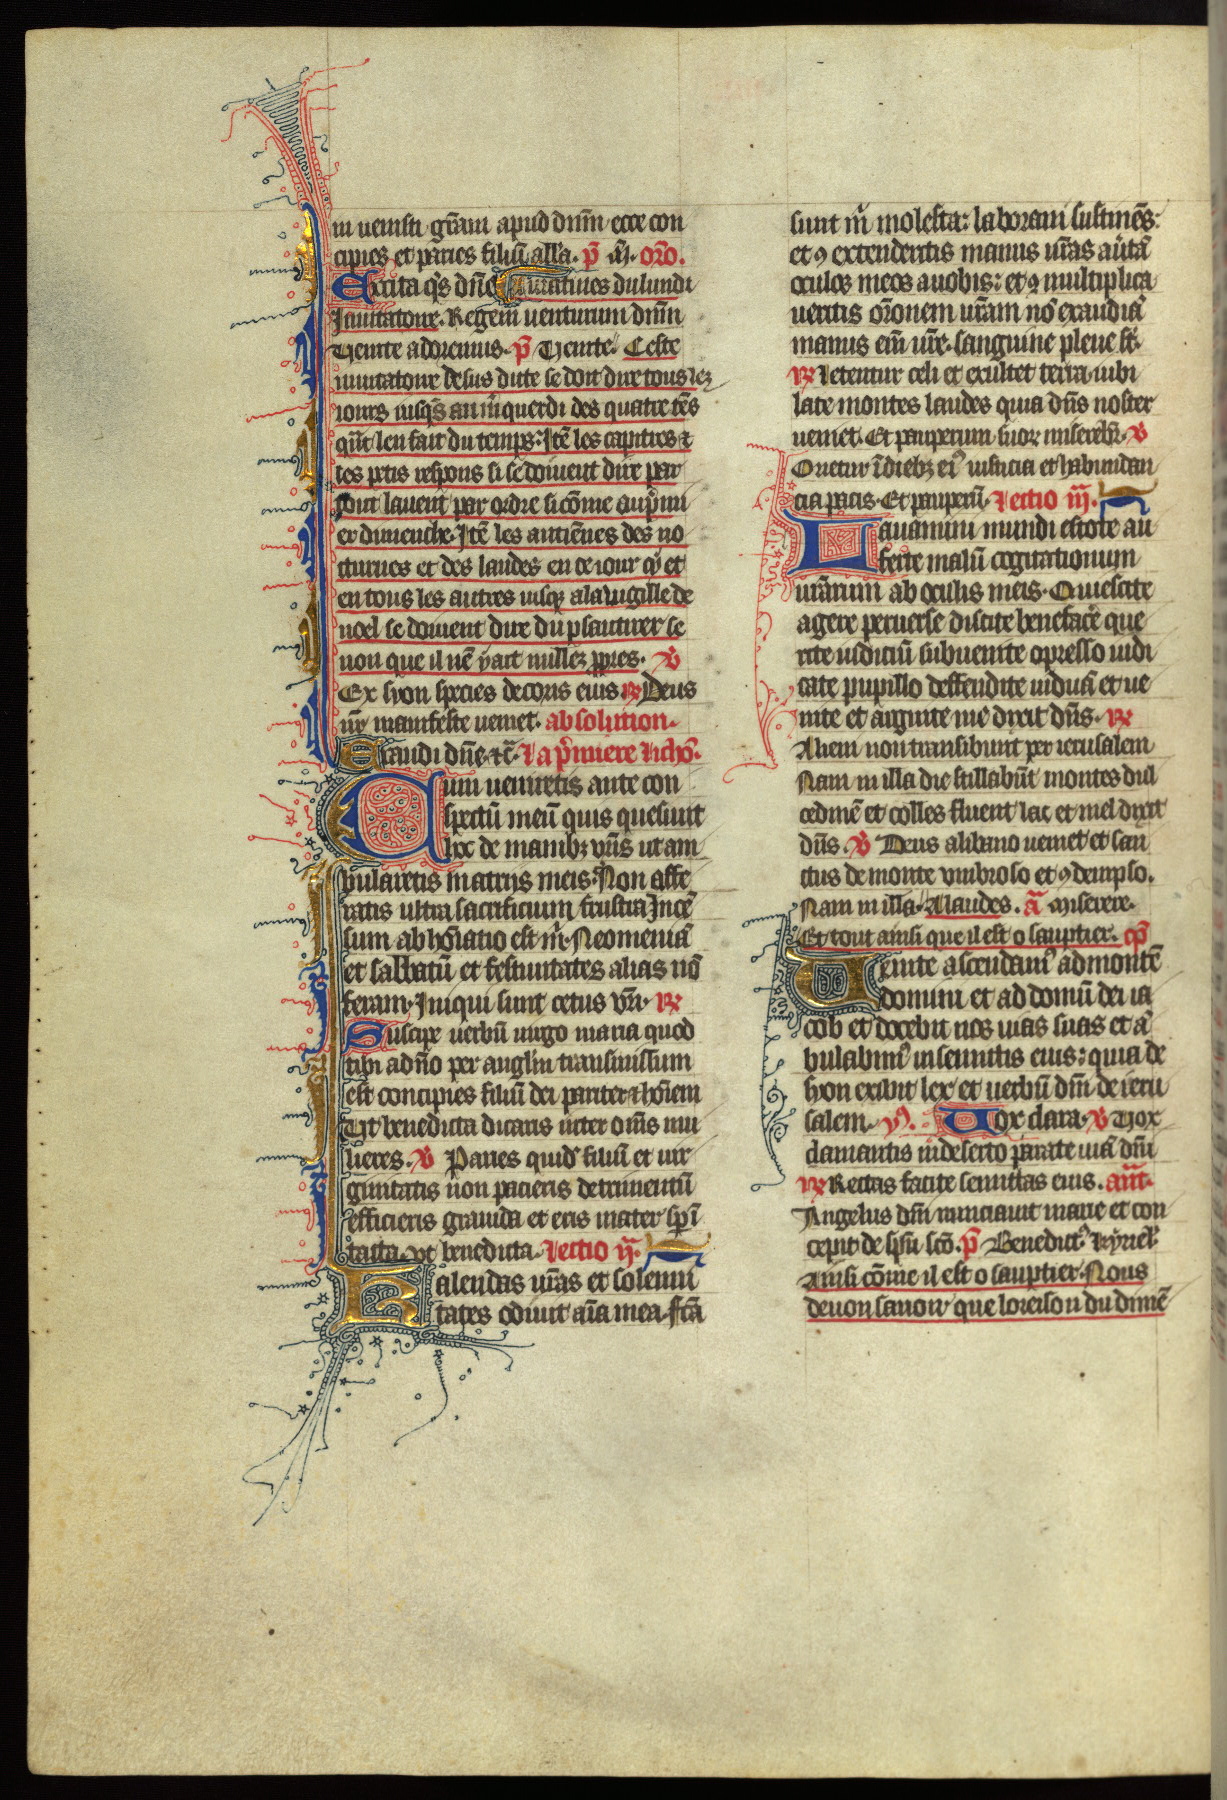 in uenisti gr̄am apud dn̄m ecce con
cipies et paries filiū alla. p̄ m̄. or̄o.
Excita q̄s dn̄e A matines du lundi
Jnuitatoire. Regem uenturum dn̄m
Uenite adoremus. p̄ Uenite. Ceste
inuitatoire desus dite se doit dire tous les
iours iusqs̄ au m̄querdi des quatre tēs
qn̄t len fait du temps. Jtē les capitres ⁊
les petis respons si se doiuent dire par
tout lauent par ordre si cōme au p̄mi
er dimenche. Jtē les antiēnes des no
cturnes et des laudes en ce iour cy et
en tous les autres iusqs a la uigille de
noel se doiuent dire du psautirer se
non que il nē y ait nullez ꝓpres. ℣
Ex syon species decoris eius ℟ Deus
nr̄ manifeste ueniet. absolution.
Exaudi dn̄e. ⁊c̄. La p̄miere lichō.
Cum ueniretis ante con
spectū meū quis quesiuit
hec de manibꝫ ur̄is ut am
bularetis in atrijs meis. Non affe
ratis ultra sacrificium frustra Jncē
sum abhoīatio est m̄. Neomeniā
et sabbatū et festiuitates alias nō
feram. Jniqui sunt cetus ur̄i. ℟
Suscipe uerbū uirgo maria quod
tibi a dn̄o per angl̄m transmissum
est concipies filiū dei pariter ⁊ hoīem
Ut benedicta dicaris inter om̄s mu
lieres. ℣ Paries quid̄ filiū et uir
ginitatis non pacieris detrimentū
efficieris grauida et eris mater sp̄
casta. ut benedicta. Lectio ij.
Kalendas ur̄as et solemni
tates odiuit aīa mea. fc̄a
sunt m̄ molesta: laboraui sustinēs:
et ꝯ extenderitis manus ur̄as au̓tā
oculos meos a uobis: et ꝯ multiplica
ueritis or̄onem ur̄am nō exaudiā
manus eīn ur̄e. sanguine plene st̄.
℟ Letentur celi et exultet terra iubi
late montes laudes quia dn̄s noster
ueniet. Et pauperum suoꝝ miserebr̄. ℣
Orietur ī diebꝫ ei᷒ iusticia et habundan
cia pacis. Et pauperū. Lectio iij.
Lauamini mundi estote au
ferte malū cogitationum
ur̄arum ab oculis meis. Quiescite
agere peruerse discite benefacē que
rite iudiciū subuenite opresso iudi
cate pupillo deffendite uiduā et ue
nite et arguite me dixit dn̄s. ℟
Alieni non transibunt per ierusalem
Nam in illa die stillabūt montes dul
cedinē et colles fluent lac et mel dixit
dn̄s. ℣ Deus a libano ueniet et san
ctus de monte umbroso et ꝯdempso.
Nam in illa. A laudes. ā Miserere.
Et tout ainsi que il est o sauptier. cp̄
Uenite ascendam᷒ ad montē
domini et ad domū dei ia
cob et docebit nos uias suas et ā
bulabim᷒ in semitis eius: quia de
syon exibit lex et uerbū dn̄i de ieru
salem. yn̄. Uox clara. ℣ Uox
clamantis in deserto parate uiā dn̄i
℟ Rectas facite semitas eius. ant̄.
Angelus dn̄i nunciauit marie et con
cepit de sp̄u sc̄o. p̄ Benedict᷒ kyriel᷒.
Ainsi cōme il est o sauptier. Nous
deuon sauoir que loreison du dimē